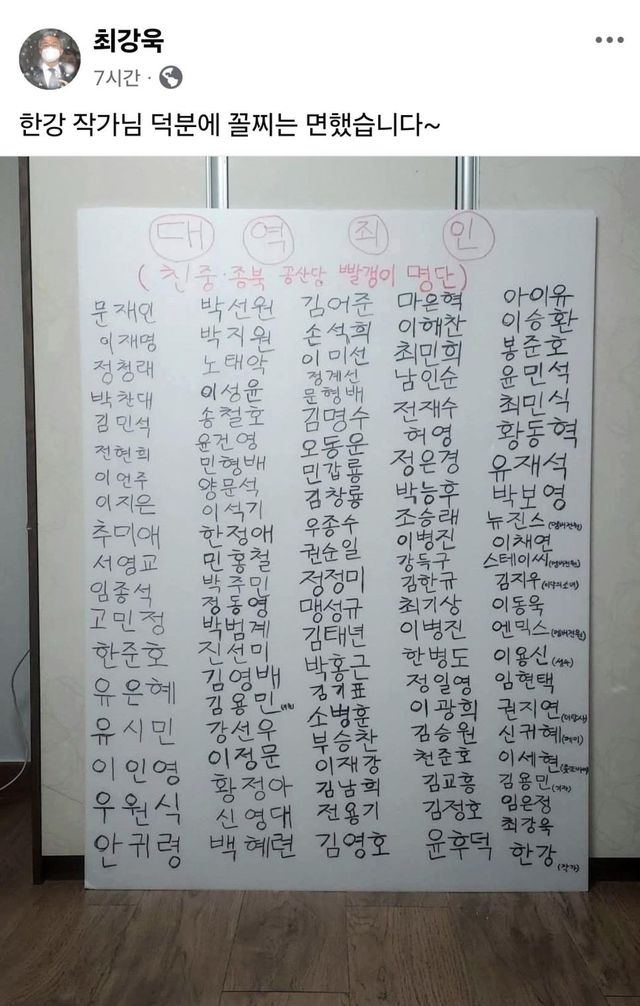 최강욱
7시간
한강 작가님 덕분에 꼴찌는 면했습니다~
대 역 죄 인
( 친중·종북 공산당 빨갱이 명단)
문재인 박선원 김어준 마은혁 아이유
이재명 박지원 손석희 이해찬 이승환
정청래 노태악 이미선 최민희 봉준호
박찬대 이성윤 정계선 남인순 윤민석
김민석 송철호 문형배 전재수 최민식
전현희 윤건영 김명수 허영 황동혁
이언주 민형배 오동운 정은경 유재석
이지은 양문석 민갑룡 박능후 박보영
추미애 이석기 김창룡 조승래 뉴진스(멤버전원)
서영교 한정애 우종수 이병진 이채연
임종석 민홍철 권순일 강득구 스테이씨(멤버전원)
고민정 박주민 정정미 김한규 김지우(이달의소녀)
한준호 정동영 맹성규 최기상 이동욱
유은혜 박범계 김태년 이병진 엔믹스(멤버전원)
유시민 진선미 박홍근 한병도 이용신(성우)
이인영 김영배 김기표 정일영 임현택
우원식 김용민 소병훈 이광희 권지연
안귀령 강선우 부승찬 김승원 신귀혜
이정문 이재강 천준호 이세현
황정아 김남희 김교흥 김용민(기자)
신영대 전용기 김정호 임은정
백혜련 김영호 윤후덕 최강욱
한강(작가)